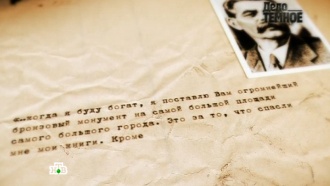 Дело
ТЕМНОЕ
Когда я буду богат, я поставлю Вам огромнейший
бронзовый монумент на самой большой площади
самого большого города. Это за то, что спасли
мне мои книги. Кроме
НТВ